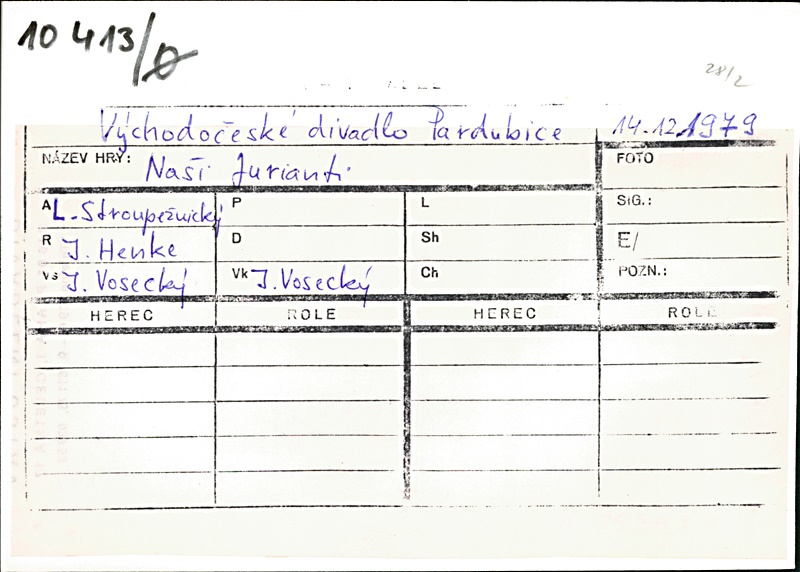 10 413/0
28/2
Východočeské divadlo Pardubice 14.12.1979
NÁZEV HRY: Naši furianti FOTO
A L. Stroupežnický P L SIG.:
R J. Henke D Sh E/
Vs J. Vosecký Vk J. Vosecký Ch POZN.:
HEREC ROLE HEREC ROLE